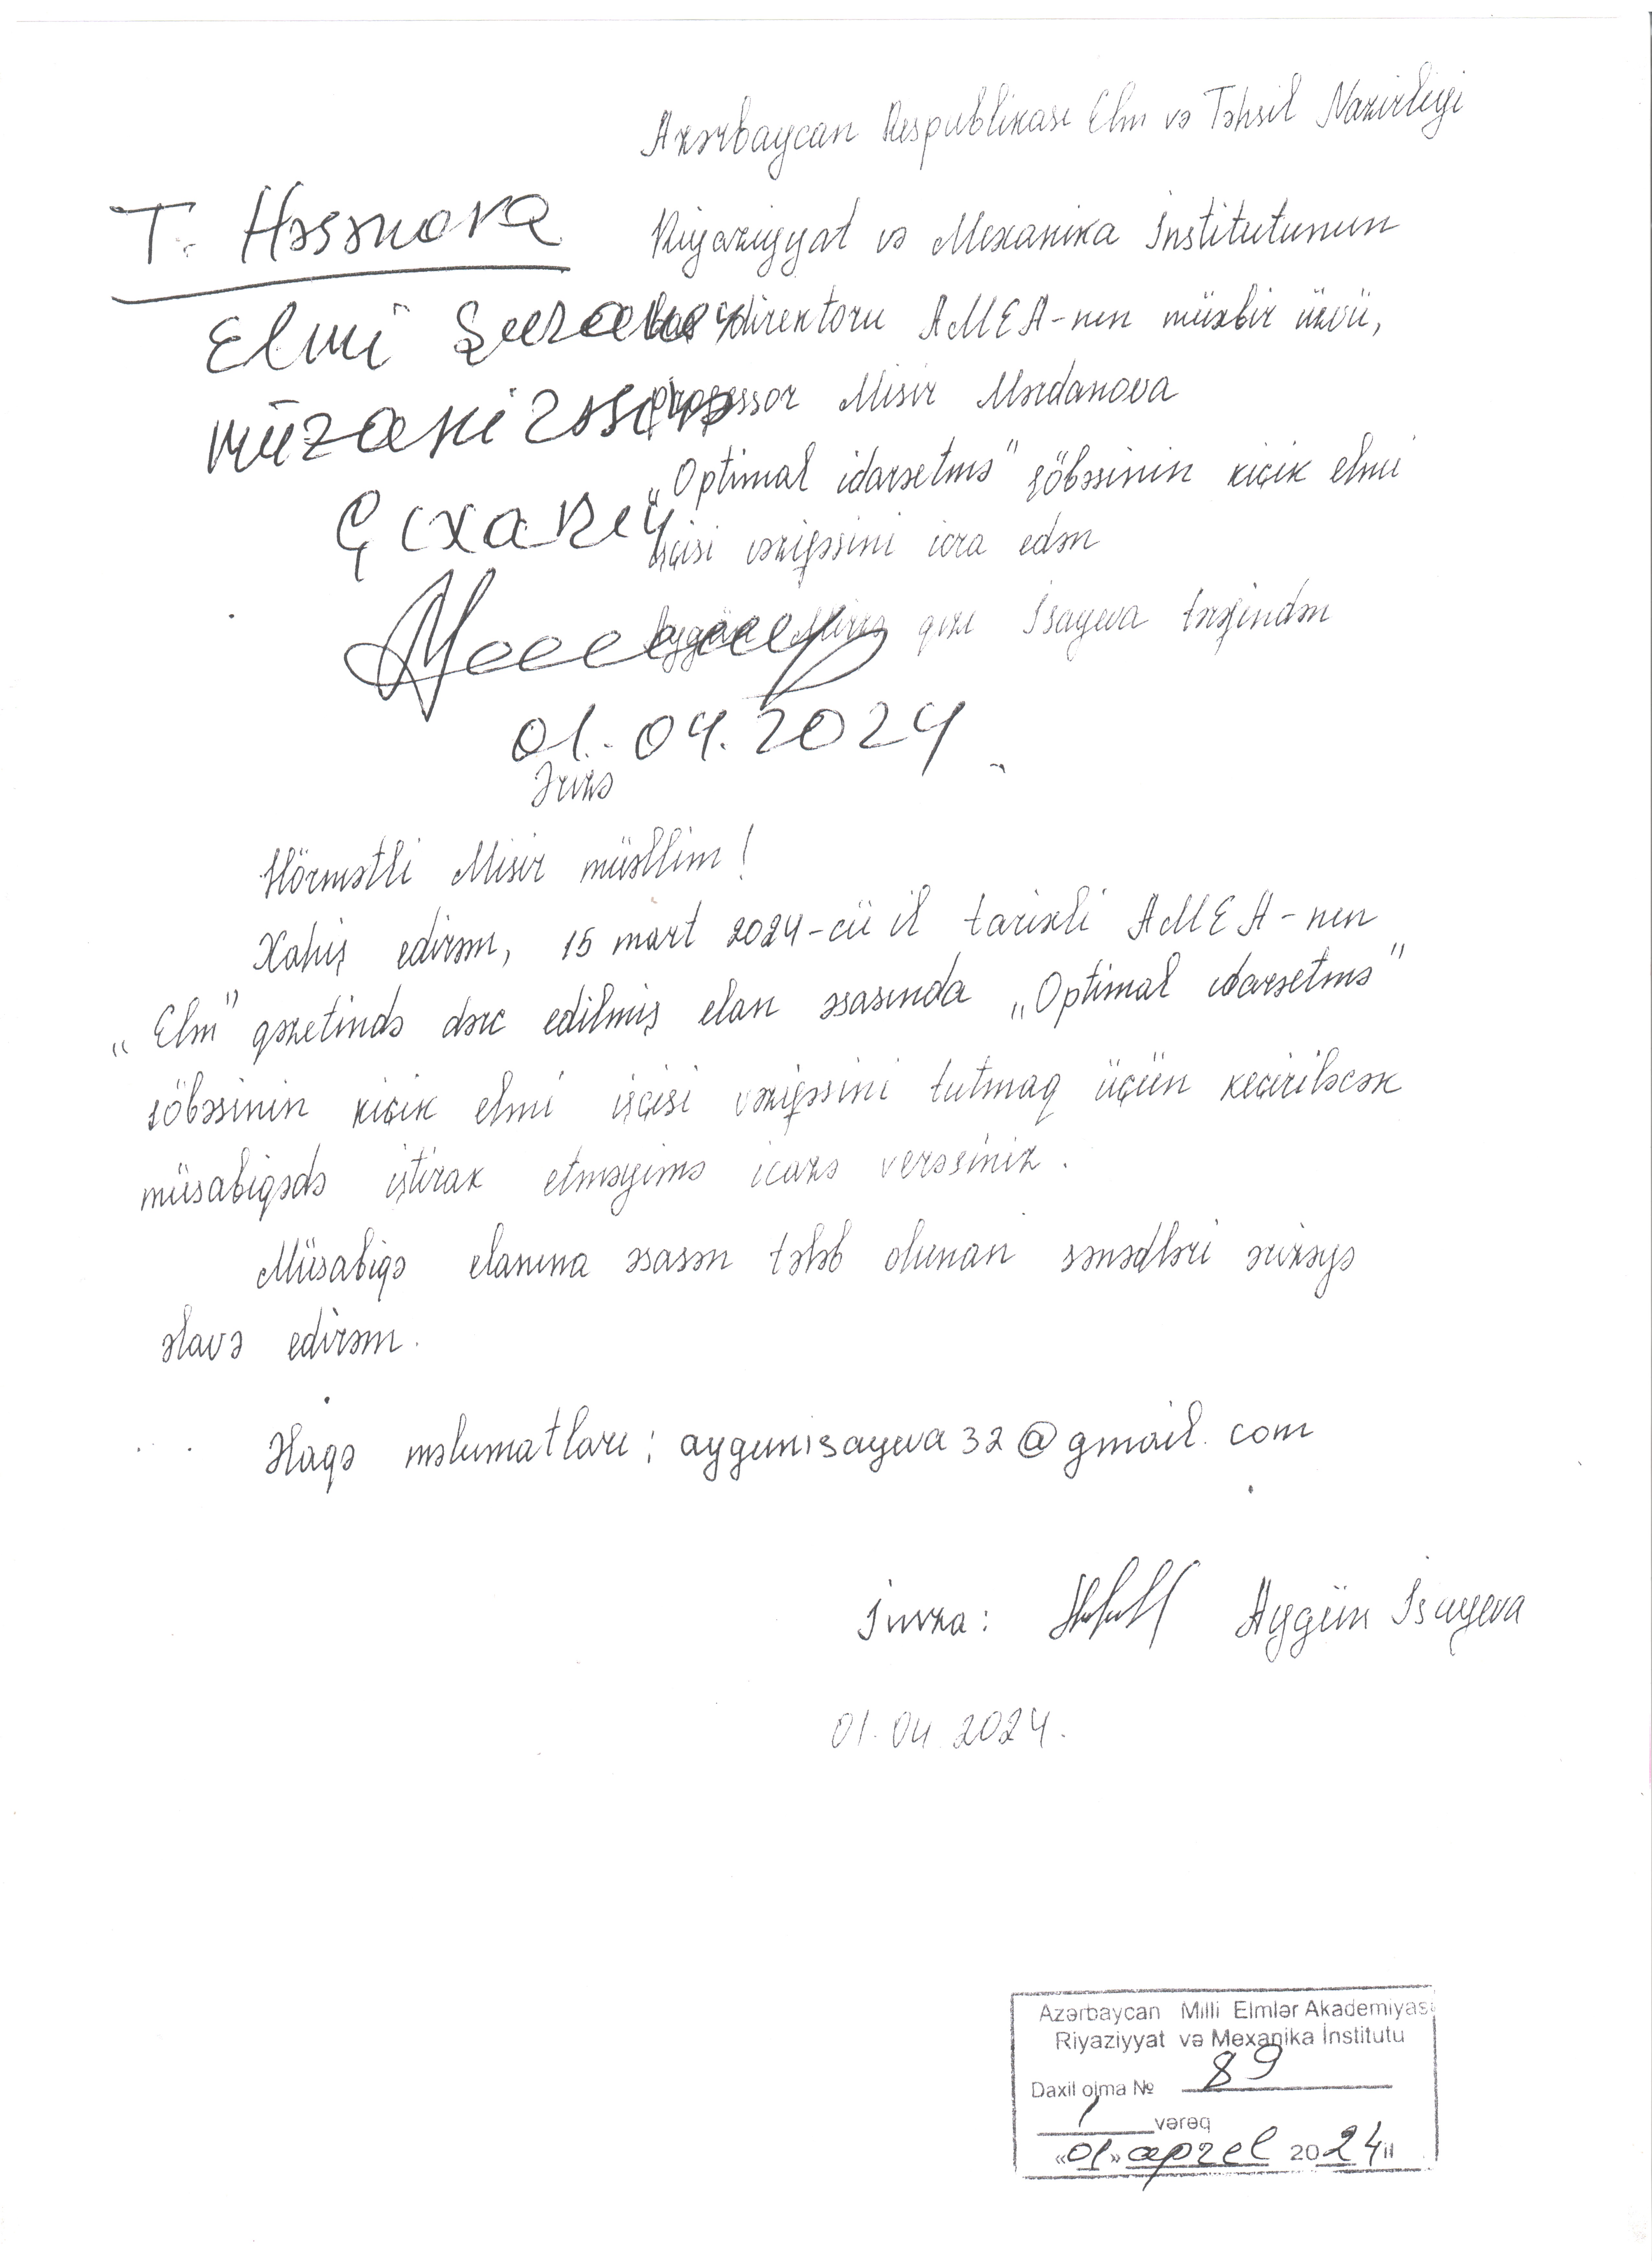 Azərbaycan Respublikası Elm və Təhsil Nazirliyi
Riyaziyyat və Mexanika İnstitutunun
baş direktoru AMEA-nın müxbir üzvü,
professor Misir Mərdanova
„Optimal idarəetmə" şöbəsinin kiçik elmi
işçisi vəzifəsini icra edən
Aygün qızı İsayeva tərəfindən
T. Həsənova
Elmi Şuranın
müzakirəsinə
çıxarın
01.04.2024
Ərizə
Hörmətli Misir müəllim!
Xahiş edirəm, 15 mart 2024-cü il tarixli AMEA-nın
„Elm" qəzetində dərc edilmiş elan əsasında „Optimal idarəetmə"
şöbəsinin kiçik elmi işçisi vəzifəsini tutmaq üçün keçiriləcək
müsabiqədə iştirak etməyimə icazə verəsiniz.
Müsabiqə elanına əsasən tələb olunan sənədləri ərizəyə
əlavə edirəm.
Əlaqə məlumatları: aygunisayeva32@gmail.com
İmza: Aygün İsayeva
01.04.2024.
Azərbaycan Milli Elmlər Akademiyası
Riyaziyyat və Mexanika İnstitutu
Daxil olma № 89
1 vərəq
«01» aprel 2024 il